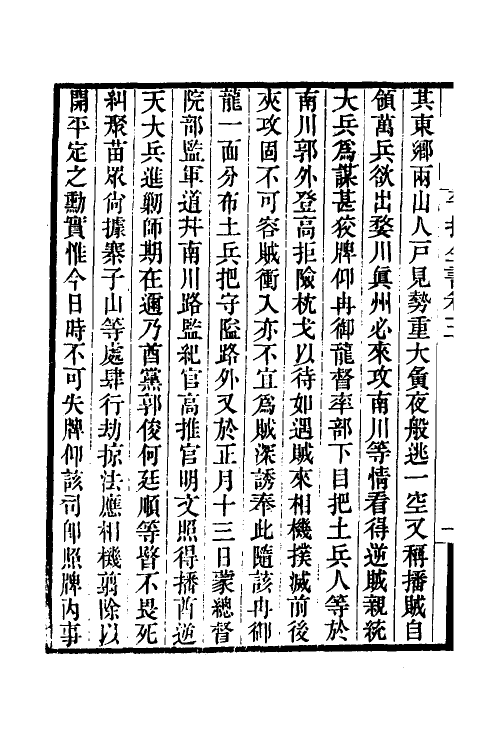 其東鄉兩山人戸見勢重大夤夜般逃一空又稱播賊自
領萬兵欲出婺川眞州必來攻南川等情看得逆賊親統
大兵爲謀甚狡牌仰冉御龍督率部下目把土兵人等於
南川郭外登高拒險枕戈以待如遇賊來相機撲滅前後
夾攻固不可容賊衝入亦不宜爲賊深誘奉此隨該冉御
龍一面分布土兵把守隘路外又於正月十三日蒙總督
院部監軍道幷南川路監紀官高推官明文照得播酋逆
天大兵進勦師期在邇乃酋黨郭俊何廷順等皆不畏死
糾聚苗眾尙據寨子山等處肆行劫掠法應相機翦除以
開平定之勳實惟今日時不可失牌仰該司卽照牌內事
平播全書卷三
一